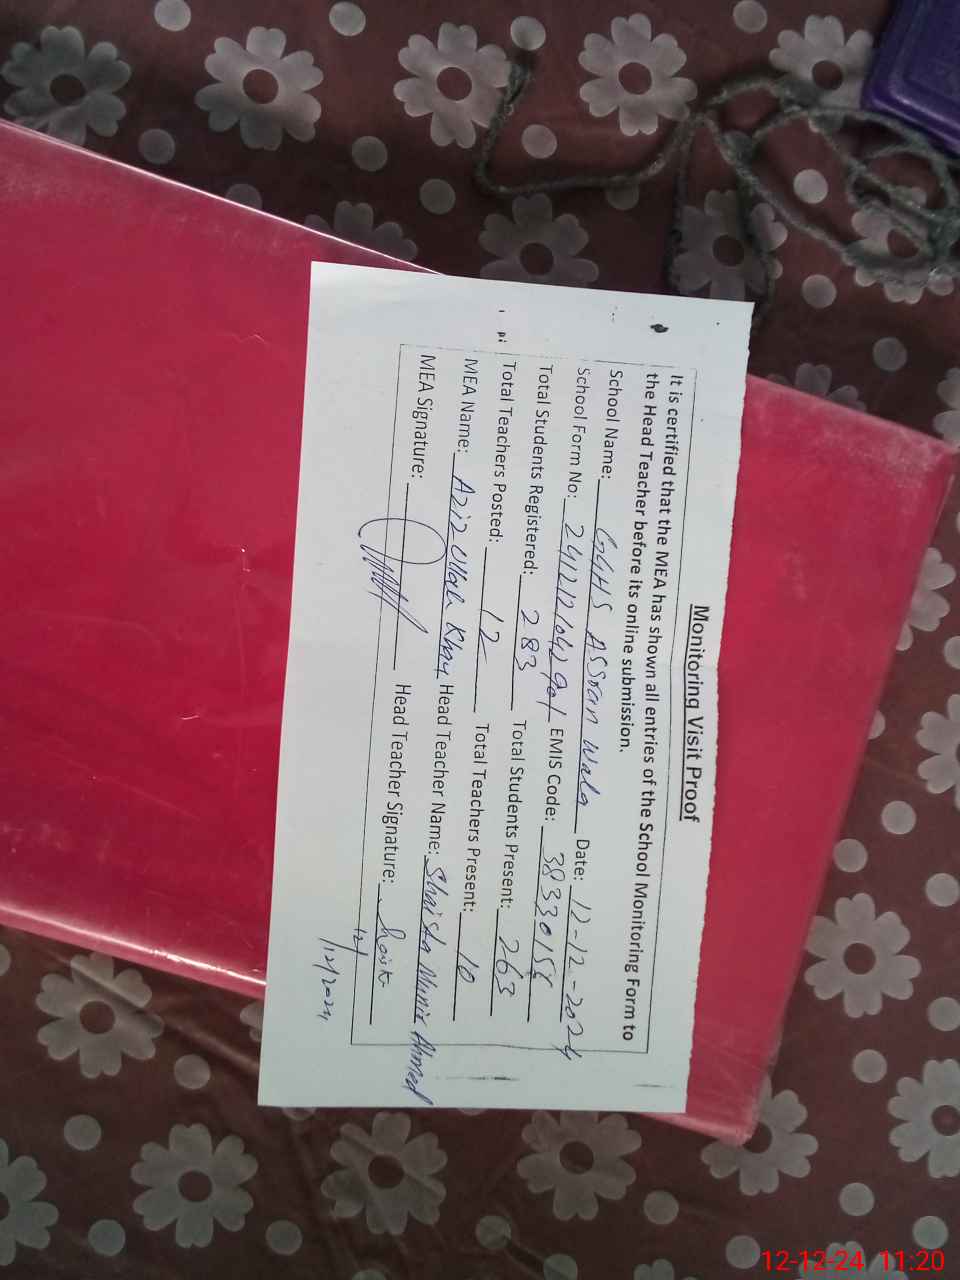 Monitoring Visit Proof
It is certified that the MEA has shown all entries of the School Monitoring Form to
the Head Teacher before its online submission.
School Name: GGHS ASSran Wala Date: 12-12-2024
School Form No: EMIS Code: 38330156
Total Students Registered: 283 Total Students Present: 263
Total Teachers Posted: 12 Total Teachers Present: 10
MEA Name: Aziz Ullah Khan Head Teacher Name: Shaista Munir Ahmed
MEA Signature: Head Teacher Signature: Shaista
12/12/2024
12-12-24 11:20